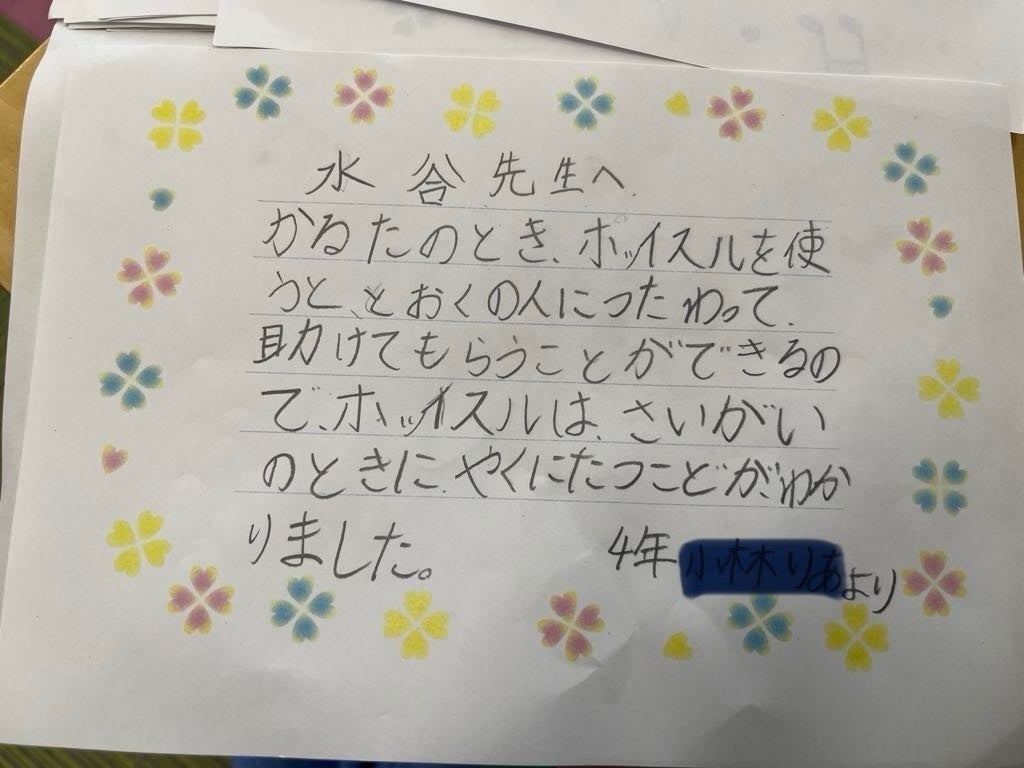 水谷先生へ
かるたのとき、ホッイスルを使
うと、とおくの人につたわって、
助けてもらうことができるの
で、ホッイスルは、さいがい
のときに、やくにたつことが、わか
りました。
4年 より